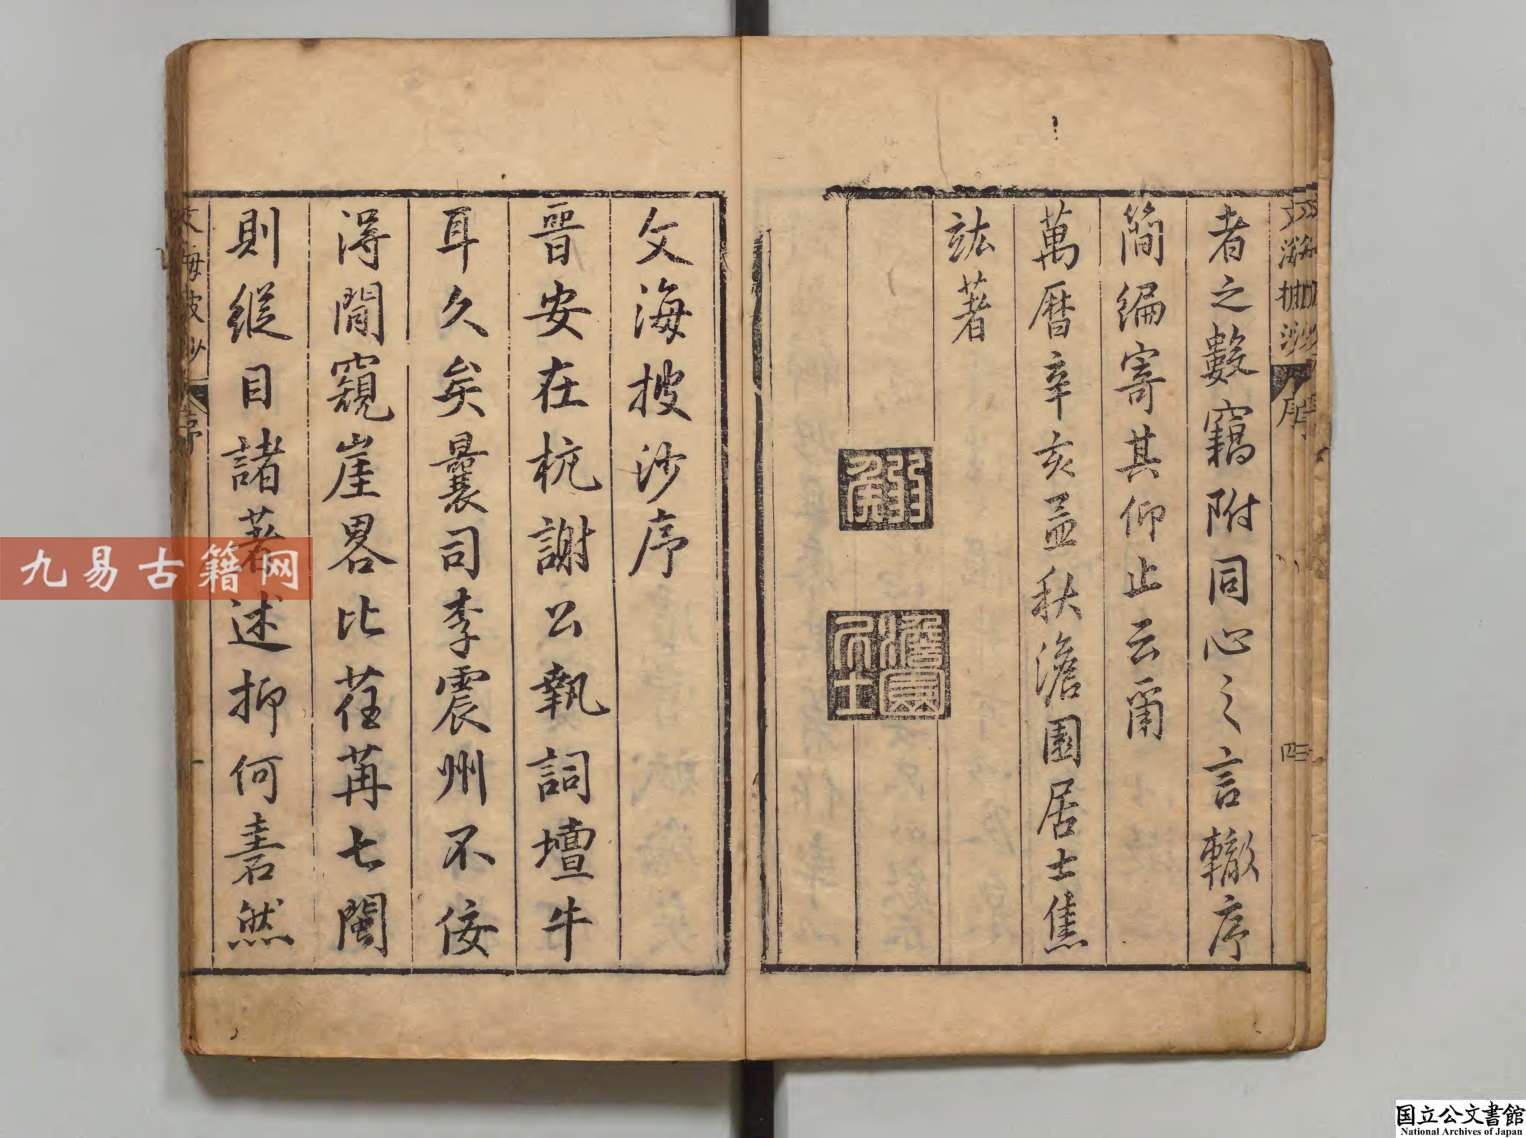 者之數竊附同心之言轍序
簡編寄其仰止云爾
萬曆辛亥孟秋澹園居士焦
竑著
澹園居士
四
文海披沙序
晉安在杭謝公執詞壇牛
耳久矣曩司李震州不佞
淂間窺崖畧比在苒七閩
則縱目諸著述抑何嘉然
文海披沙
序
九易古籍网
国立公文書館
National Archives of Japan